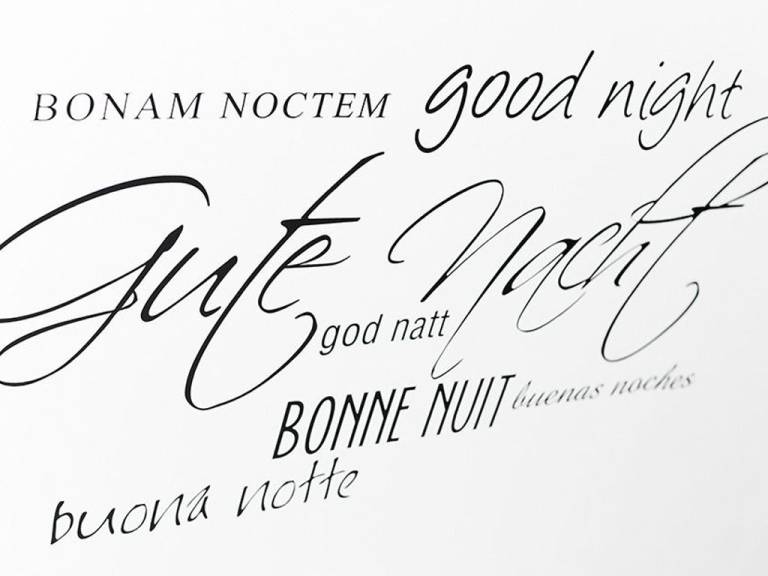 BONAM NOCTEM
good night
Gute Nacht
god natt
BONNE NUIT
buenas noches
buona notte